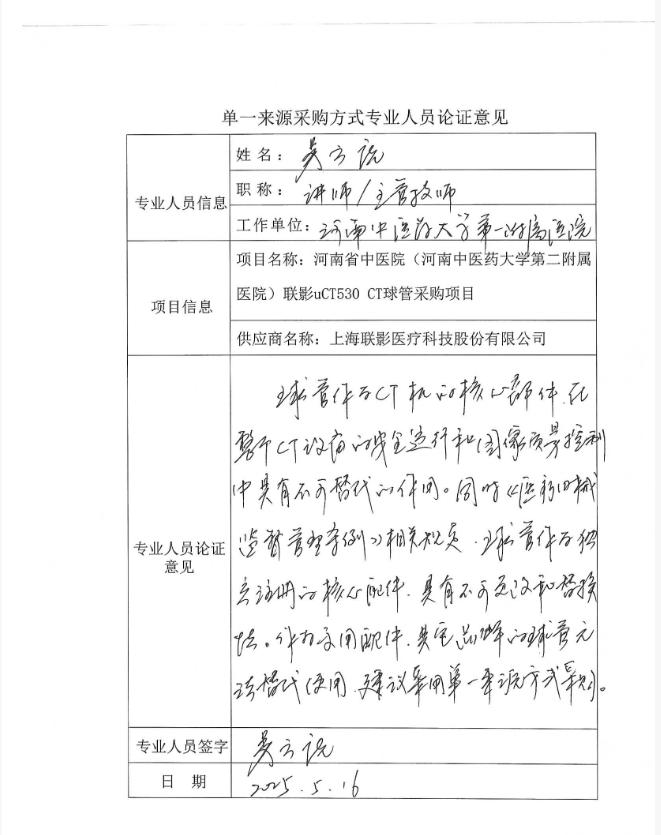 单一来源采购方式专业人员论证意见
专业人员信息
姓名：吴方锐
职称：讲师/主管技师
工作单位：河南中医药大学第一附属医院
项目信息
项目名称：河南省中医院（河南中医药大学第二附属
医院）联影uCT530 CT球管采购项目
供应商名称：上海联影医疗科技股份有限公司
专业人员论证
意见
球管作为CT机的核心部件，在
整个CT设备的安全运行和图像质量控制
中具有不可替代的作用。同时《医疗器械
监督管理条例》相关规定，球管作为独
立注册的核心配件，具有不可更改和替换
性。作为专用配件，其它品牌的球管无
法替代使用，建议采用单一来源方式采购。
专业人员签字
日 期
2025.5.16